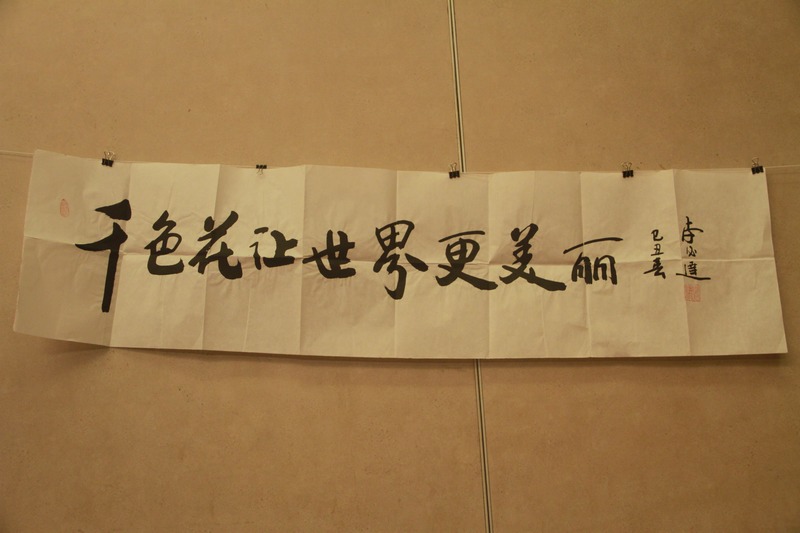 千色花让世界更美丽
己丑春
李必廷